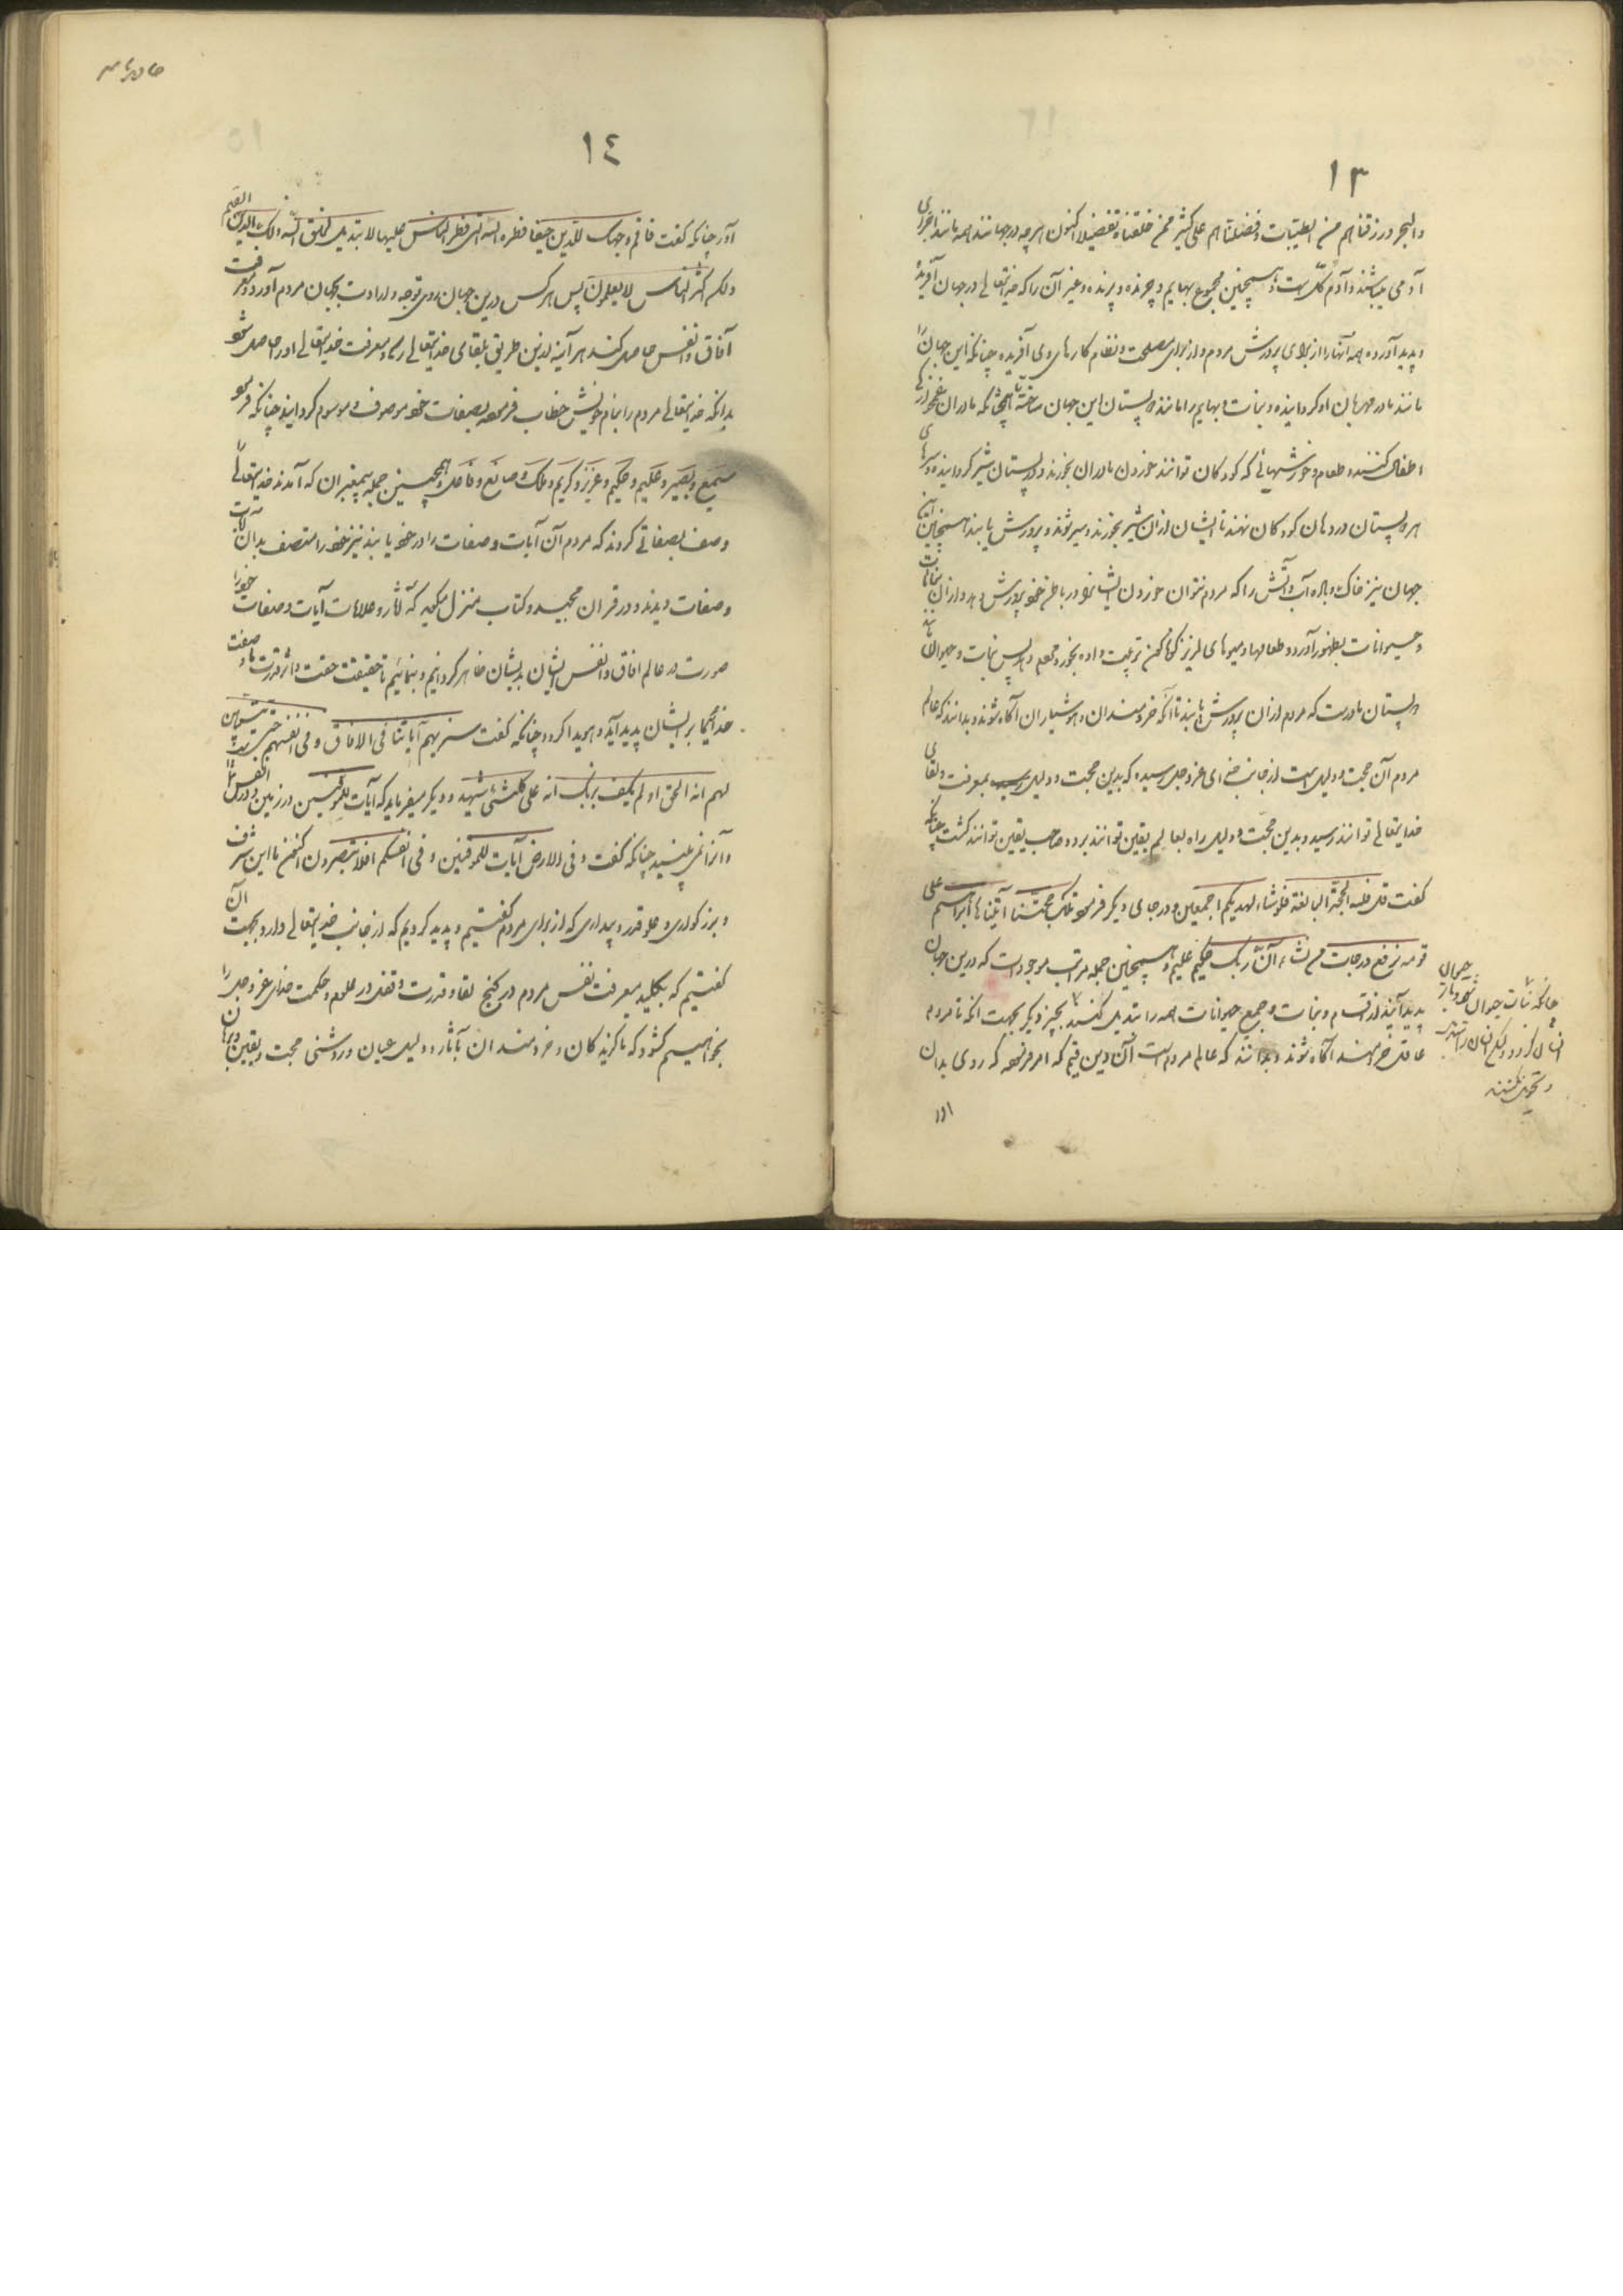 ١٣
والبحر ورزقناهم من الطیبات وفضلناهم علی کثیر ممن خلقناه تفضیلا اکنون هرچه در جهانند همه مانند اجزای
آدمی میباشند و آدم کلّ است و همچنین مجموع بهایم و چرنده و پرنده و غیر آن را که خدایتعالی در جهان آفریده
و پدید آورده همه آنها را از برای پرورش مردم و از برای مصلحت و نظام کارهای وی آفریده چنانکه این جهان را
مانند مادر مهربان او کردانیده و نبات و بهایم را مانند پستان این جهان ساخته همچنانکه مادران
اطفال کنند و طعام و خورشهائی که کودکان نتوانند خوردن مادران بخورند و در پستان شیر کردانیده و سرهای
هر دو پستان در دهان کودکان نهند تا ایشان از آن شیر بخورند و سیر شوند و پرورش یابند همچنین این
جهان نیز خاک و باد و آب و آتش را که مردم نتوان خوردن ایشانرا در باطن خود پرورش دهد و از آن نباتات
و حیوانات بظهور آورد و طعامها و میوهای لذیذ کوناکون ترتیب داده بخورد مردم دهد پس نبات و حیوان مانند
پستان مادرست که مردم از آن پرورش یابند تا آنکه خردمندان و هوشیاران آکاه شوند و بدانند که عالم
مردم آن حجت و دلیل است از جانب خدای عزوجل رسیده که بدین حجت و دلیل بمعرفت و لقای
خدایتعالی توانند رسید و بدین حجّت و دلیل راه بعالم یقین توانند برد و صاحب یقین توانند کشت چنانکه
کفت قل فلله الحجّة البالغة فلو شاء لهدیکم اجمعین و در جای دیکر فرمود و تلک حجّتنا آتیناها ابراهیم علی
قومه نرفع درجات من نشاء انّ ربک حکیم علیم و همچنین جمله مراتب موجودات که درین جهان
پدید آیند از اقسام و نبات و جمیع حیوانات همه را تبدیل کنند بچیز دیکر بجهت آنکه تا مردم
عاقل خردمند آکاه شوند و بدانند که عالم مردم است آن دین قیم که امر فرموده که روی بدان
چنانکه نبات حیوان شود و باز حیوان
انسان کردد ولیکن انسان را تبدیل
و تحویل نکنند
آور
١٤
آور چنانکه کفت فاقم وجهک للدین حنیفا فطرة الله التی فطر الناس علیها لا تبدیل لخلق الله ذلک الدین القیم
ولکن اکثر الناس لا یعلمون پس هرکس درین جهان روی توجه و ارادت بجهان مردم آورد و معرفت
آفاق و انفس حاصل کند هر آینه بدین طریق بلقای خدایتعالی رسد و معرفت خدایتعالی او را حاصل شود
بدانکه خدایتعالی مردم را بنام خویش خطاب فرموده بصفات خود موصوف و موسوم کردانید چنانکه فرمود
سمیع و بصیر و علیم و حکیم و عزیز و کریم و ملک و صانع و فاعل و همچنین جمله پیغمبران که آمدند خدایتعالی را
وصف بصفاتی کردند که مردم آن آیات و صفات را در خود یابند نیز خود را متصف بدان آیات
و صفات دیدند و در قران مجید و کتاب منزل میکوید که آثار و علامات آیات و صفات خود را
صورت در عالم افاق و انفس ایشان بدیشان ظاهر کردانیم و بنمائیم تا حقیقت حقیت و اثر قدرت و صفت
خدائی ما بر ایشان پدید آید و هویدا کردد چنانکه کفت سنریهم آیاتنا فی الافاق و فی انفسهم حتی یتبین
لهم انه الحق اولم یکف بربک انه علی کلشئ شهید و دیکر میفرماید که آیات للموقنین در زمین و در انفس شما
و آنرا نمی بینید چنانکه کفت و فی الارض آیات للموقنین و فی انفسکم افلا تبصرون اکنون ما این شرف
و بزرکواری و علو قدر و پیداری که از برای مردم کفتیم و پدید کردیم که از جانب خدایتعالی دارد بجهت آن
کفتیم که بکلید معرفت نفس مردم در کنج لقا و قدرت و تفکر در علوم و حکمت خدای عز و جل را
بخواهیم کشود که تا کزیدکان و خردمندان بآثار و دلیل عیان و روشنی حجت و یقین